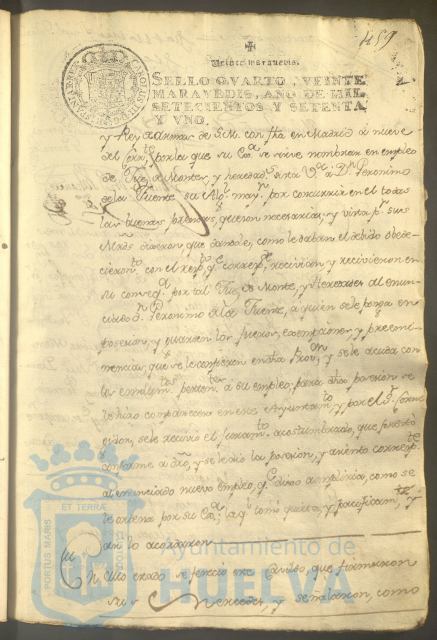 459
Veinte maravedis.
SELLO QVARTO, VEINTE
MARAVEDIS, AÑO DE MIL
SETECIENTOS Y SETENTA
Y VNO.
y Rey de Armas de S.M. con fha en Madrid a nueve
del por la que su se sirve nombrar en empleo
de de Montes, y a Dn. Geronimo
de la Fuente su Alge. mayr. por concurrir en el todas
las buenas prendas, que son necesarias, y vista pr. sus
Mrds dixeron que dandole, como le daban el debido obede-
cimto. con el respto. qe. correspe. recivian, y recivieron en
su conseqa. por tal Juez de Monte, y al enun-
ciado Dn. Geronimo de la Fuente, a quien se le ponga en
posesion, y guarden los fueros, exempciones, y preemi-
nencias, que se le confieren en dha Provon. y se le acuda con
los emolumtos. pertentes. a su empleo, para cuia posesion se
le hizo comparecer en este Ayuntamto. y por el Sr. Corre-
gidor, se le recivio el juramto. acostumbrado, que presto
conforme a dro, y se le dio la posesion, y asiento correspte.
al enunciado nuevo empleo, qe. dixo como se
le ordena por su la qe. tomo quieta, y pacificamte. y
asi lo acordaron
En cuio estado se fenecio este Cavildo, que firmaron
sus Mercedes, y señalaron, como
PORTUS MARIS ET TERRAE
Ayuntamiento de
HUELVA